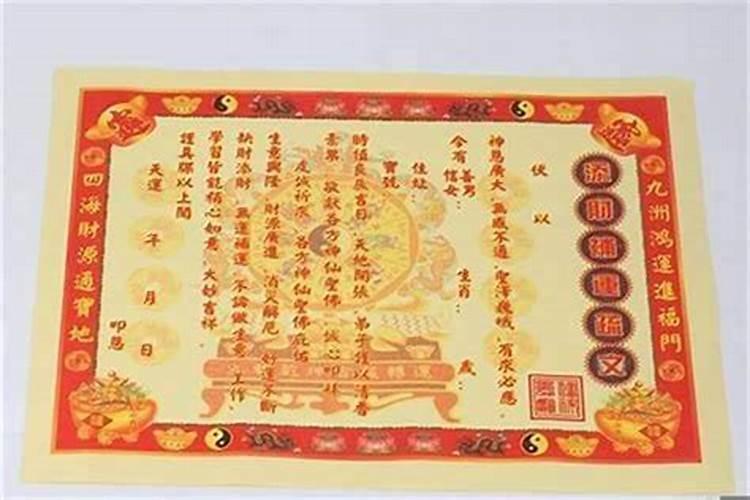 九洲鴻運進福門
添財補運疏文
伏以
神恩廣大 無感不通 聖澤巍峨 有求必應
今有善男信女： 生肖： 歲：
住址：
寶號
時值良辰吉日 天地開張 弟子謹以清香
素果 敬獻各方神仙聖佛 誠心叩拜
虔誠祈求 各方神仙聖佛庇佑
生意興隆 財源廣進 消災解厄 好運不斷
缺財添財 無運補運 不論做生意、工作、
學習皆能稱心如意 大妙吉祥
謹具疏以上聞
天運 年 月 日
叩懇
四海財源通寶地